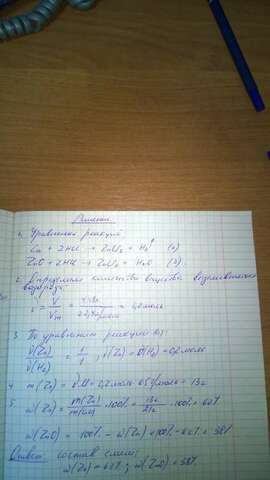 Решение
1. Уравнения реакций
Zn + 2HCl → ZnCl₂ + H₂↑ (а)
ZnO + 2HCl → ZnCl₂ + H₂O (б)
2. Определяем количество вещества выделившегося
водорода:
3. По уравнению реакции а):
ν(Zn)/ν(H₂) = 1/1, ν(Zn) = ν(H₂) = 0,2 моль
4. m(Zn) = ν·M = 0,2 моль · 65 г/моль = 13г
5. ω(Zn) = m(Zn)/m(см) · 100% = 13г/21г · 100% = 62%
ω(ZnO) = 100% - ω(Zn) = 100% - 62% = 38%
Ответ: состав смеси:
ω(Zn) = 62%; ω(ZnO) = 38%.